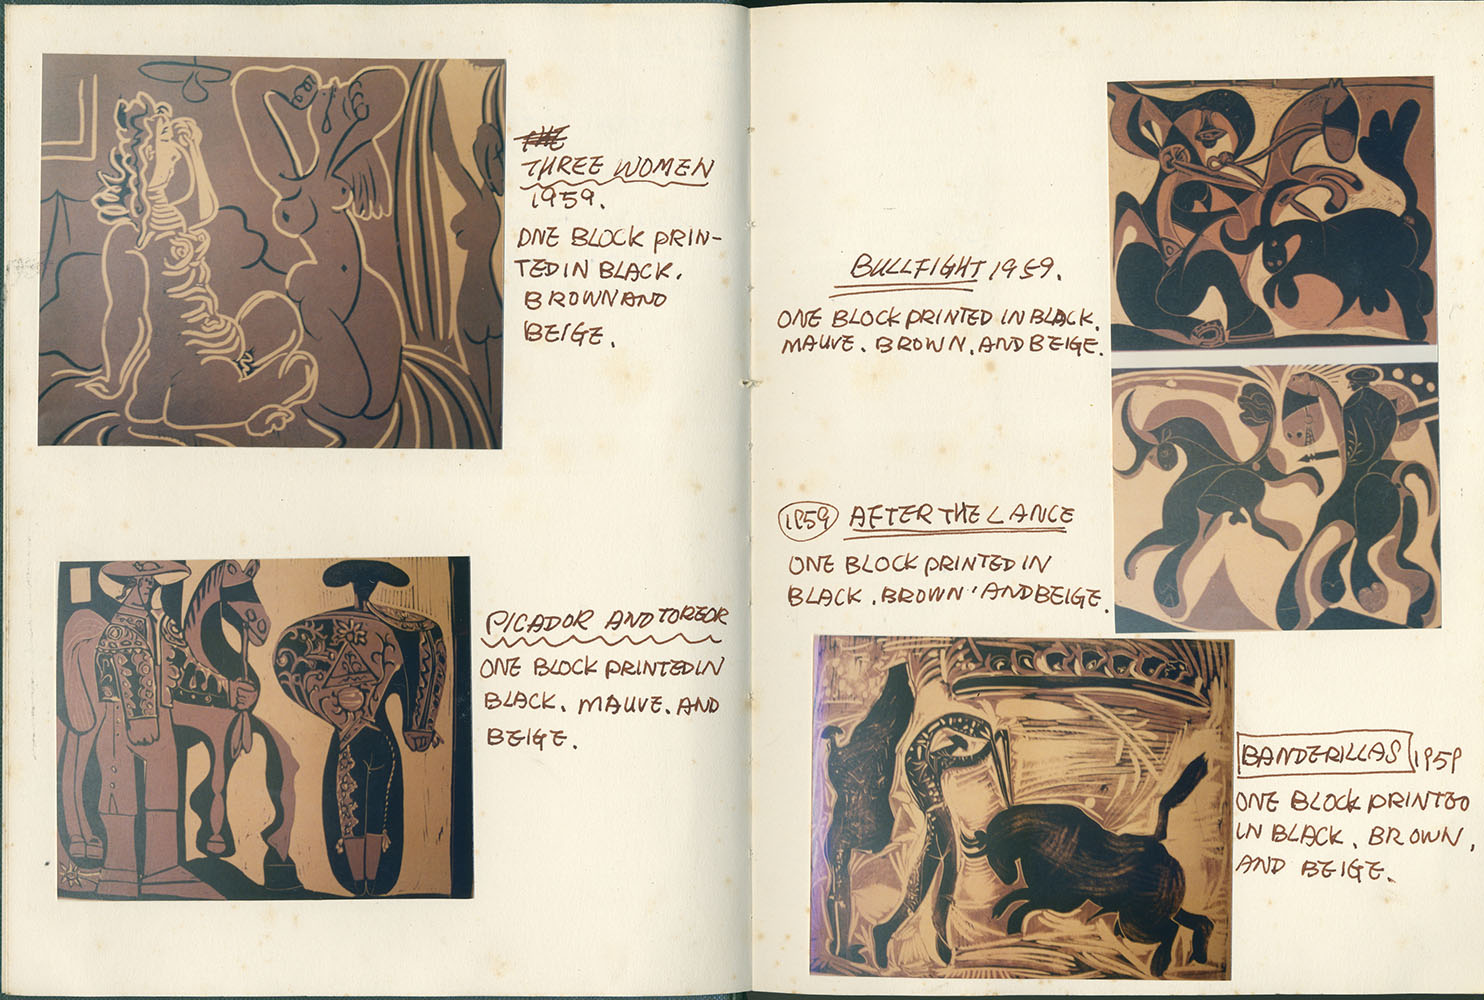 THE
THREE WOMEN
1959.
ONE BLOCK PRIN-
TED IN BLACK.
BROWN AND
BEIGE.
PICADOR AND TOREOR
ONE BLOCK PRINTED IN
BLACK. MAUVE. AND
BEIGE.
BULLFIGHT 1959.
ONE BLOCK PRINTED IN BLACK.
MAUVE. BROWN, AND BEIGE.
1959 AFTER THE LANCE
ONE BLOCK PRINTED IN
BLACK. BROWN' AND BEIGE.
BANDERILLAS 1959
ONE BLOCK PRINTED
IN BLACK. BROWN,
AND BEIGE.